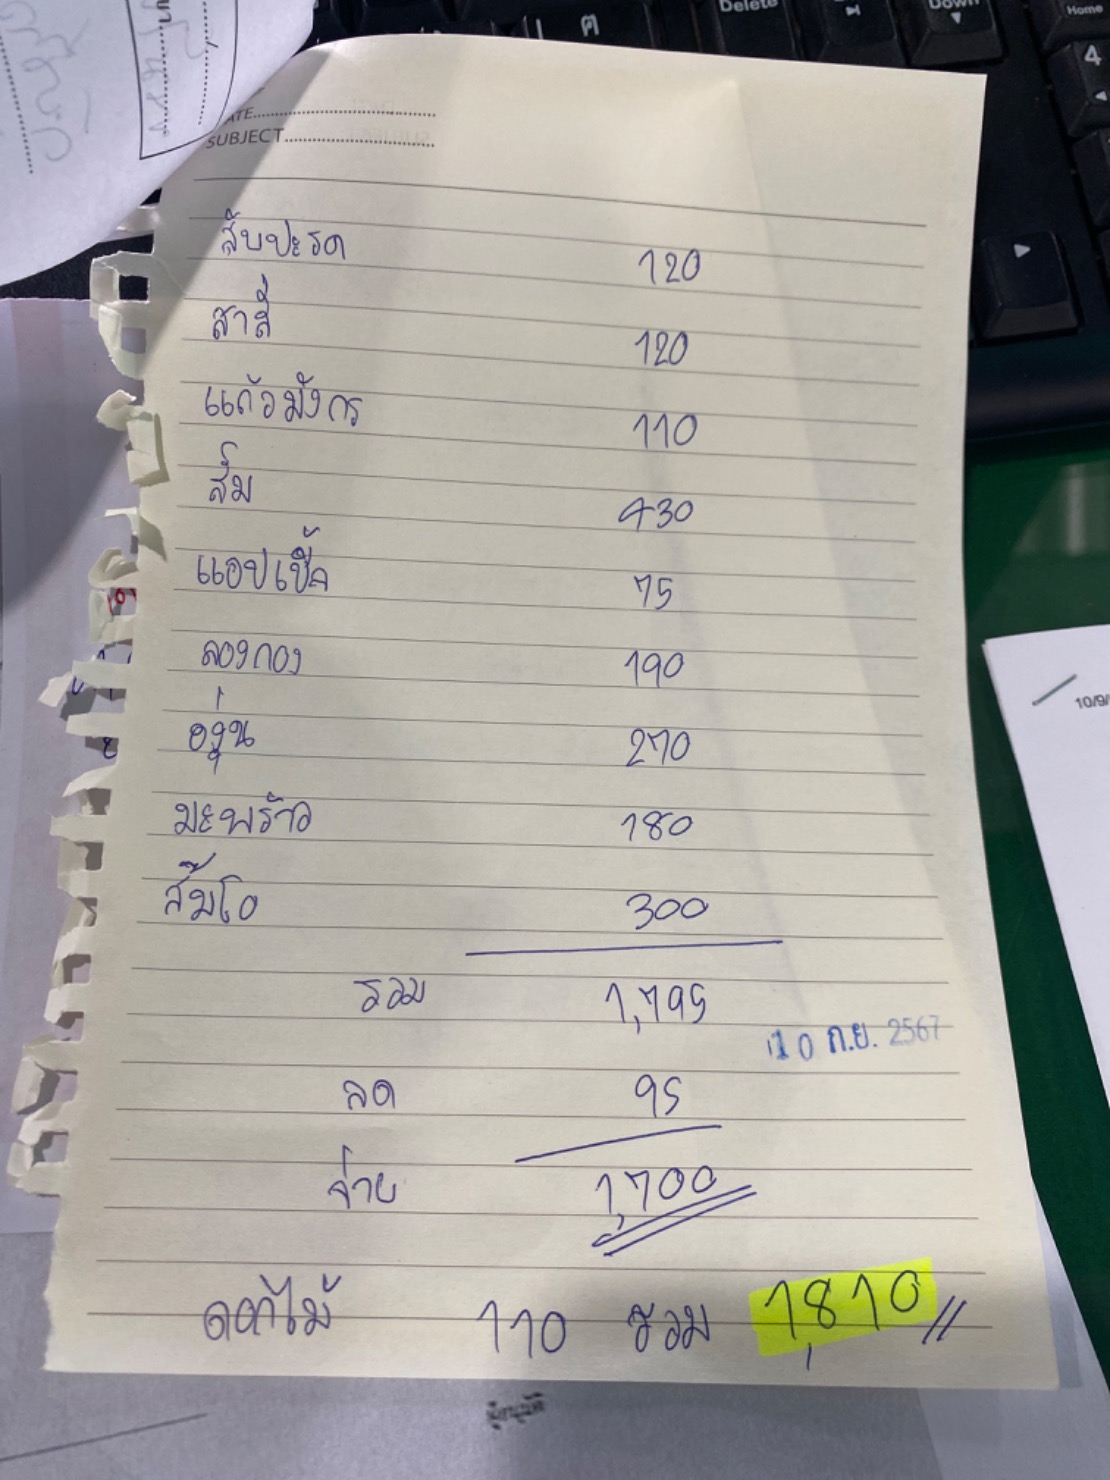 Delete
Down
Home
ค
4
ATE
SUBJECT
สับปะรด 120
สาลี่ 120
แก้วมังกร 110
ส้ม 430
แอปเปิ้ล 75
ลองกอง 190
องุ่น 270
มะพร้าว 180
ส้มโอ 300
รวม 1,795
10 ก.ย. 2567
ลด 95
จ่าย 1,700
ดอกไม้ 110 รวม 1,810
10/9/
ผู้อนุมัติ